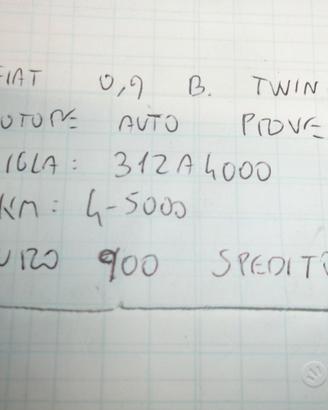 FIAT 0,9 B. TWIN
MOTORE AUTO PROVE
SIGLA: 312A4000
KM: 4-5000
EURO 900 SPEDITO